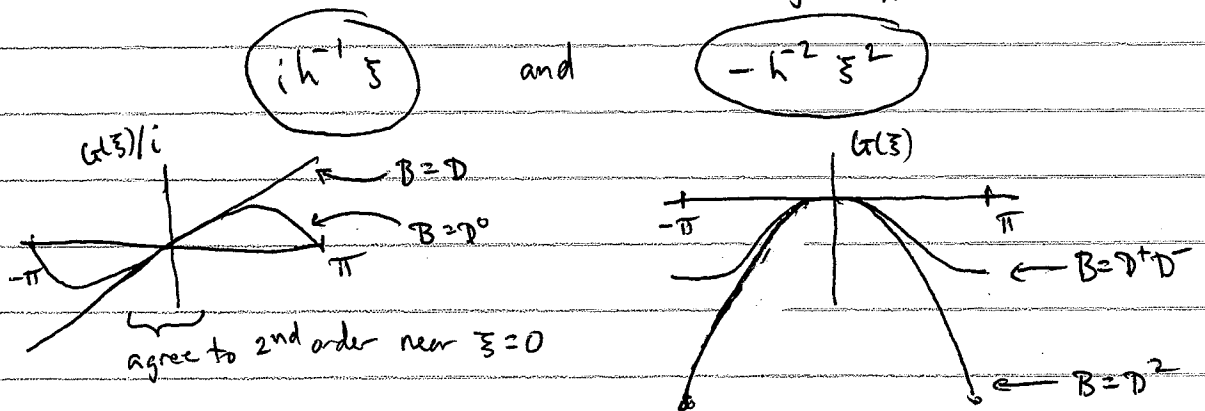 i h⁻¹ ξ and - h⁻² ξ²
G(ξ)/i
B = D
B = D⁰
-π
π
agree to 2nd order near ξ = 0
G(ξ)
-π
π
B = D⁺D⁻
B = D²